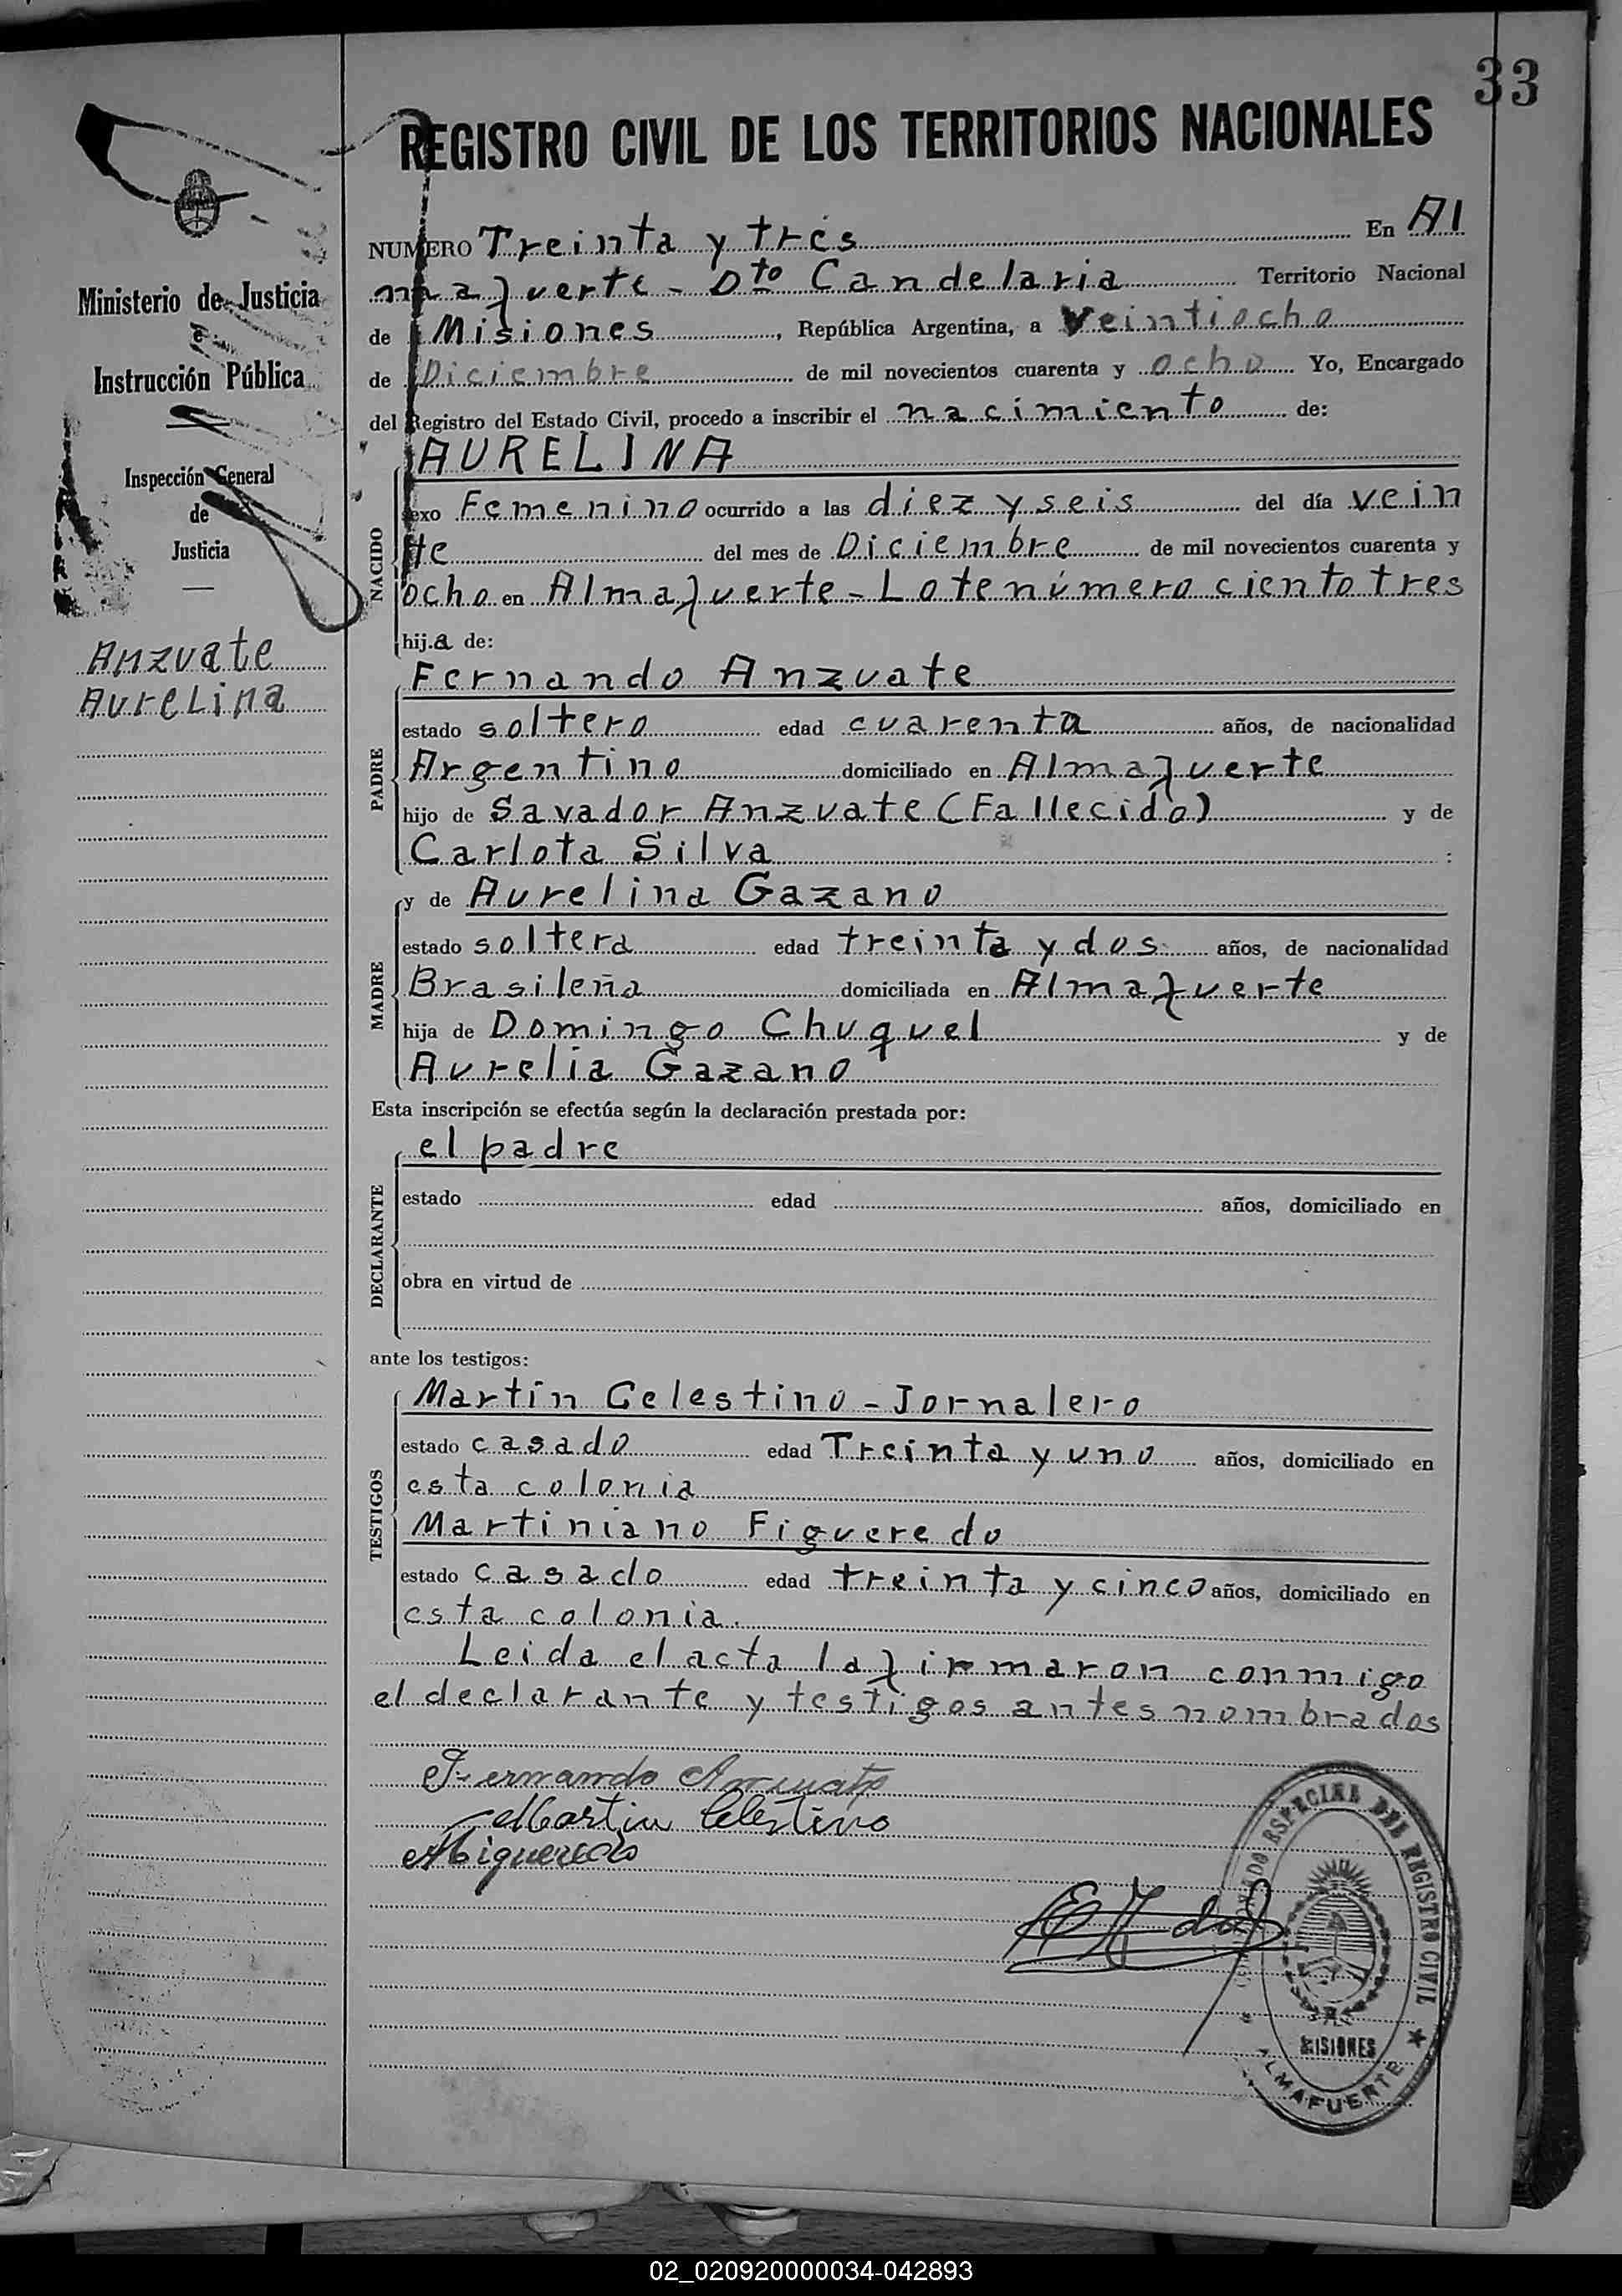 33
REGISTRO CIVIL DE LOS TERRITORIOS NACIONALES
Ministerio de Justicia
é
Instrucción Pública
Inspección General
de
Justicia
Anzuate
Aurelina
NUMERO Treinta y tres En Al
mafuerte - Dto Candelaria Territorio Nacional
de Misiones, República Argentina, a veintiocho
de Diciembre de mil novecientos cuarenta y ocho Yo, Encargado
del Registro del Estado Civil, procedo a inscribir el nacimiento de:
AURELINA
NACIDO
sexo Femenino ocurrido a las diez y seis del día vein
te del mes de Diciembre de mil novecientos cuarenta y
ocho en Almafuerte - Lote número ciento tres
hija de:
Fernando Anzuate
PADRE
estado soltero edad cuarenta años, de nacionalidad
Argentino domiciliado en Almafuerte
hijo de Savador Anzuate (Fallecido) y de
Carlota Silva :
y de Aurelina Gazano
MADRE
estado soltera edad treinta y dos años, de nacionalidad
Brasileña domiciliada en Almafuerte
hija de Domingo Chuquel y de
Aurelia Gazano
Esta inscripción se efectúa según la declaración prestada por:
el padre
DECLARANTE
estado edad años, domiciliado en
obra en virtud de
ante los testigos:
Martin Celestino - Jornalero
TESTIGOS
estado casado edad Treinta y uno años, domiciliado en
esta colonia
Martiniano Figueredo
estado casado edad treinta y cinco años, domiciliado en
esta colonia.
Leida el acta la firmaron conmigo
el declarante y testigos antes nombrados
Fernando Anzuate
Martin Celestino
MFigueredo
ESPECIAL DEL REGISTRO CIVIL
MISIONES
ALMAFUERTE
02_020920000034-042893